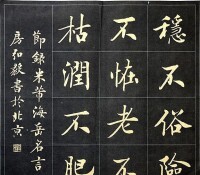 穩不俗險
不怪老不
枯潤不肥
節錄米芾海岳名言
房弘毅書於北京